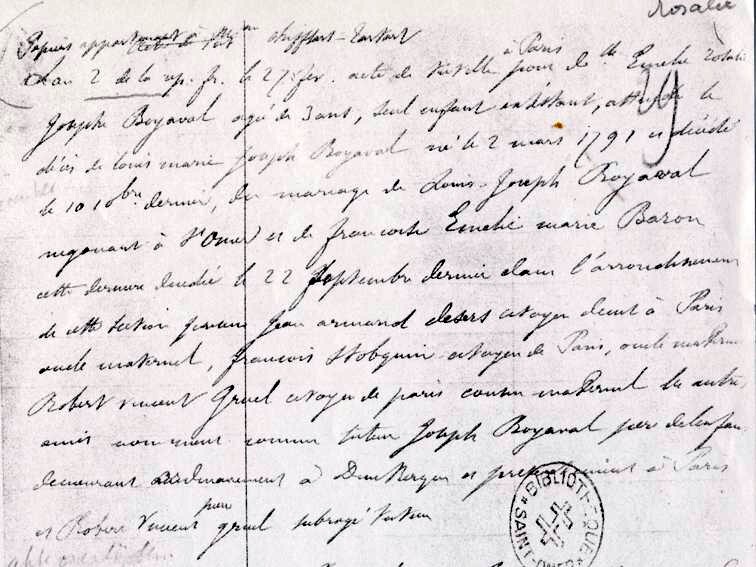 Rosalie
Papiers appartenant à Chifflart-Tartart
L'an 2 de la rp. fr. le 27 fev. acte de tutelle à Paris pour de lle Emelie Rosalie
Joseph Boyaval agée de 3 ans, seul enfant existant, attendu le
décés de louis marie Joseph Boyaval né le 2 mars 1791 et décédé
le 10 10bre dernier, du mariage de Louis-Joseph Boyaval
negociant à St Omer et de francoise Emelie marie Baron
cette derniere decedée le 22 septembre dernier dans l'arrondissement
de cette section Jean armand deserts citoyen demt à Paris
oncle maternel, francois citoyen de Paris, oncle maternel
Robert vincent Gruel citoyen de paris cousin maternel les autres
amis nomment comme tuteur Joseph Boyaval pere de l'enfant
demeurant à Dunkerque et presentement à Paris
et Robert Vincent gruel subrogé tuteur
BIBLIOTHEQUE
SAINT-OMER